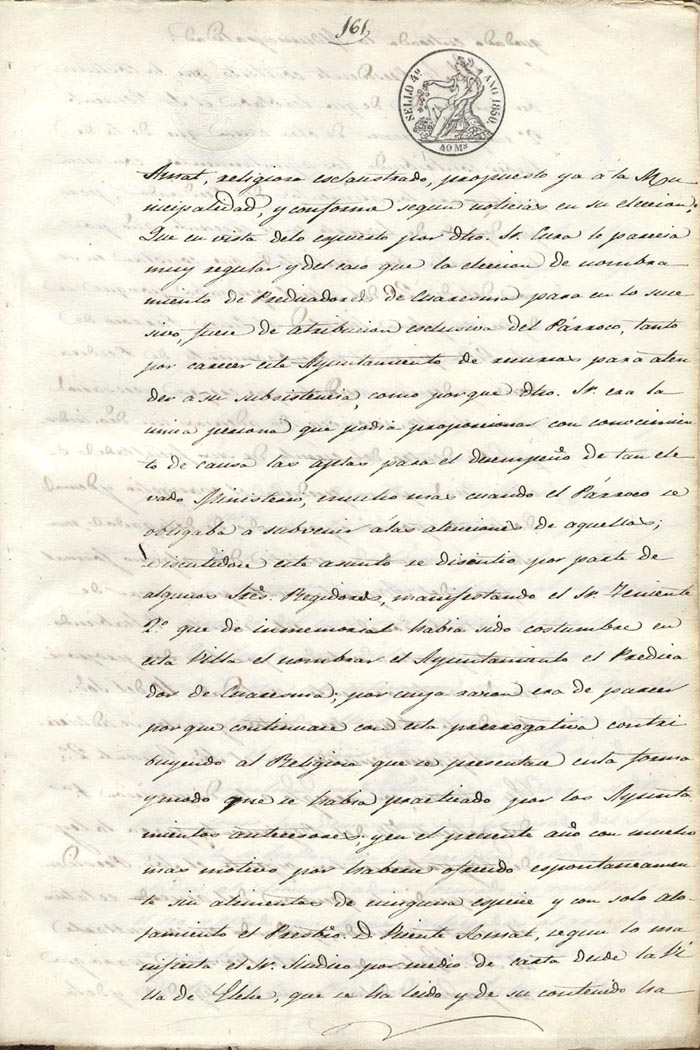 161
SELLO 4º AÑO 1850.
40 Ms
Amat, religioso esclaustrado, propuesto ya á la Mu
nicipalidad, y conforme segun noticias en su eleccion,
Que en vista delo espuesto por dho. Sr. Cura le parecia
muy regular y del caso que la eleccion de nombra
miento de Predicadores de Cuaresma para en lo suce
sivo, fuese de atribucion esclusiva del Párroco, tanto
por carecer este Ayuntamiento de recursos para aten
der a su subsistencia, como porque dho. Sr. era la
unica persona que podia proporcionar con conocimien
to de causa las aptas para el desempeño de tan ele
vado Ministerio, mucho mas cuando el Párroco se
obligaba a subvenir álas atenciones de aquellos;
este asunto se discutio por parte de
algunos Sres. Regidores, manifestando el Sr. Teniente
2.º que de inmemorial habia sido costumbre en
esta Villa el nombrar el Ayuntamiento el Predica
dor de Cuaresma; por cuya razon era de parecer
porque continuase con esta prerrogativa contri
buyendo al Religioso que se presentase enla forma
ymodo que se habia practicado por los Ayunta
mientos antecesores; yen el presente año con mucho
mas motivo por haberse ofrecido espontaneamen
te sin alimentos de ninguna especie y con solo alo
jamiento el Presbro. D. Vicente Amat, segun lo ma
nifiesta el Sr. Sindico por medio de carta desde la Vi
lla de Elche, que se ha leido y de su contenido ha